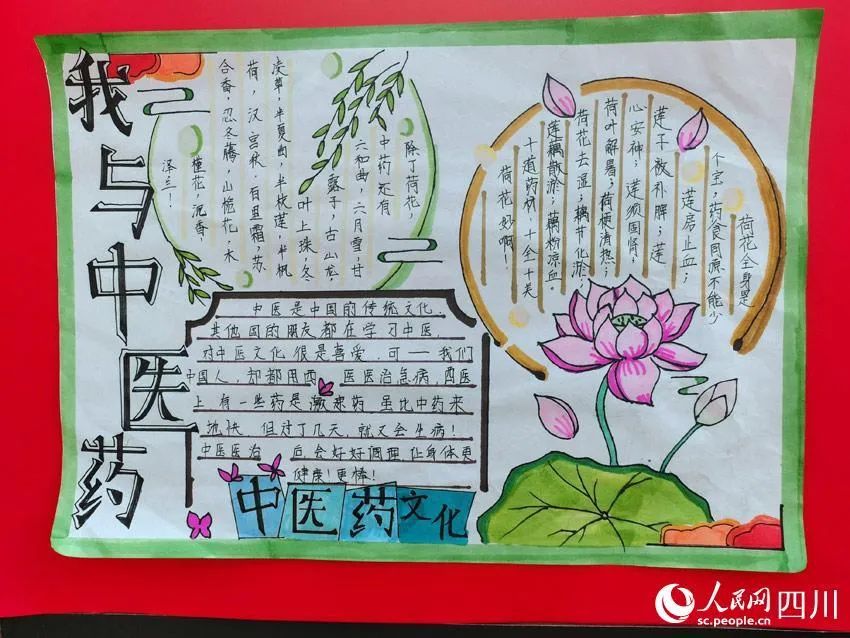 我与中医药
除了荷花,
中药还有
六和曲,六月雪,甘
露子,古山龙,
叶上珠,冬
凌草,半夏曲,半枝莲,半枫
荷,汉宫秋,百草霜,苏
合香,忍冬藤,山栀花,木
槿花,沉香,
泽兰!
荷花全身是
个宝;药食同源不能少
莲房止血;
莲子补脾;莲
心安神;莲须固肾;
荷叶解暑;荷梗清热;
荷花去湿;藕节化淤;
莲藕散淤;藕粉凉血。
十道药材,十全十美
荷花好啊!
中医是中国的传统文化
其他国的朋友都在学习中医,
对中医文化很是喜爱,可一一我们
中国人,却都用西 医医治急病,西医
上有一些药是激素药 虽比中药来
地快 但过了几天,就又会生病!
中医医治 后会好好调理 让身体更
健康!更棒!
中医药文化
人民网 四川
sc.people.cn